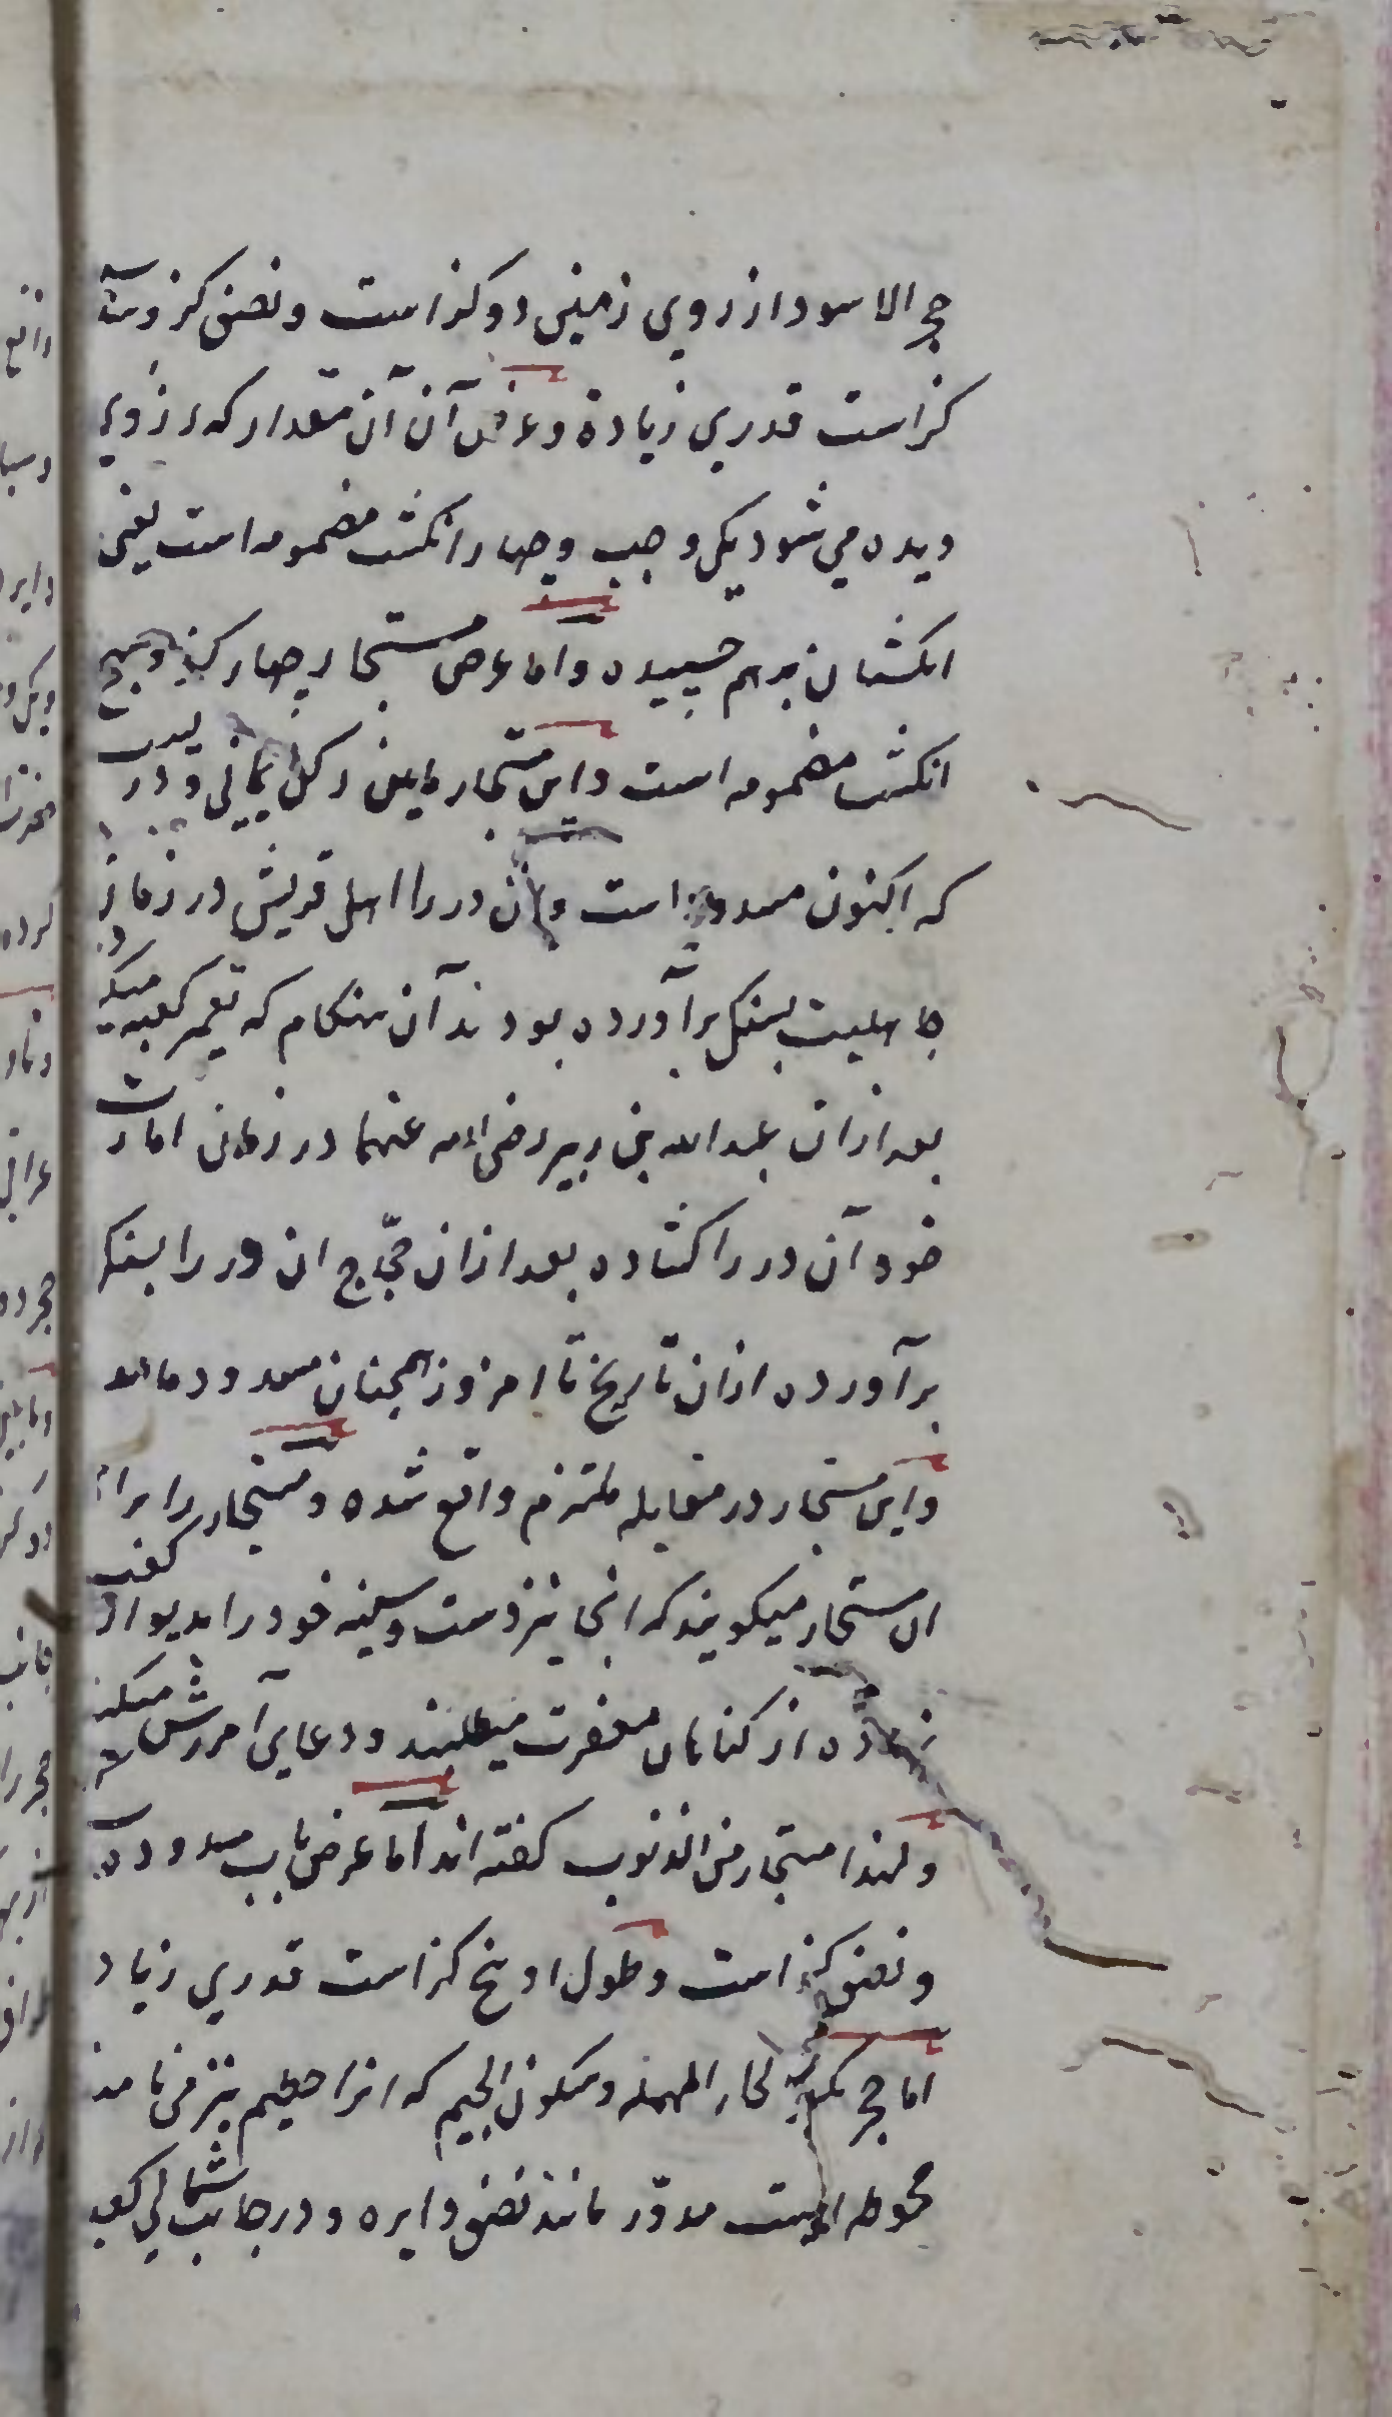 حجر الاسود از روی زمین دو کز است و نصف کز و سه
کز است قدری زیاده و عرض آن آن مقدار که از وی
دیده می شود یک وجب و چهار انکشت مضمومه است یعنی
انکشتان برهم چسپیده و اما عرض مستجار چهار کز و پنج
انکشت مضمومه است و این مستجار مابین رکن یمانی و در
که اکنون مسدود است و آن در را اهل قریش در زمان
جاهلیت بسنک برآورده بودند آن هنکام که تعمیر کعبه میکردند
بعد ازان عبدالله بن زبیر رضی الله عنهما در زمان امارت
خود آن در را کشاده بعد ازان حجّاج ان در را بسنک
برآورده ازان تاریخ تا امروز همچنان مسدود مانده
و این مستجار در مقابله ملتزم واقع شده و مستجار را برای
ان مستجار میکویند که انجا نیز دست و سینه خود را بدیوار
نهاده از کناهان مغفرت میطلبند و دعای آمرزش میکنند
و لهذا مستجار من الذنوب کفته اند اما عرض باب مسدود
و نصف کز است و طول او پنج کز است قدری زیاد
اما حجر بکسر الحاء المهمله و سکون الجیم که انرا حطیم نیز می نامند
محوطه ایست مدوّر مانند نصف دایره و در جانب شمالی کعبه